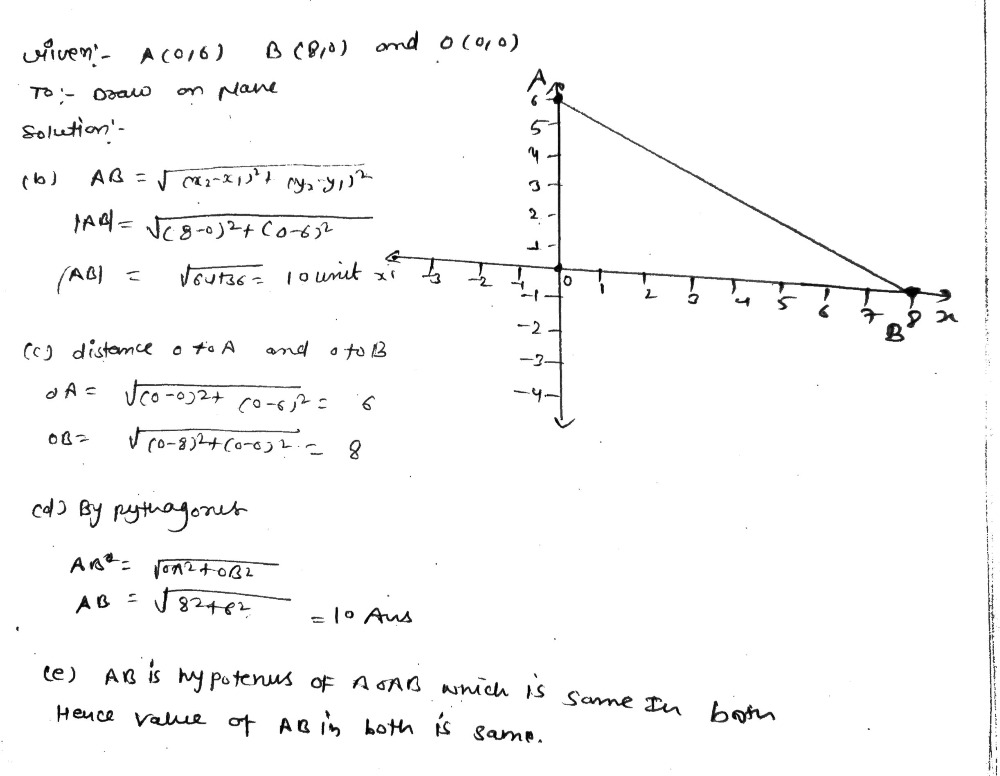 Given:- A(0,6) B(8,0) and O(0,0)
To:- Draw on plane
Solution:-
(b) AB = √(x₂-x₁)²+(y₂-y₁)²
|AB| = √(8-0)²+(0-6)²
|AB| = √64+36 = 10 unit
(c) distance O to A and O to B
OA = √(0-0)²+(0-6)² = 6
OB = √(0-8)²+(0-0)² = 8
(d) By pythagores
AB² = √OA²+OB²
AB = √8²+6² = 10 Ans
(e) AB is hypotenus of ΔOAB which is same In both
Hence value of AB in both is same.
A
6
5
4
3
2
1
x' -3 -2 -1 0 1 2 3 4 5 6 7 8 x
B
-1
-2
-3
-4